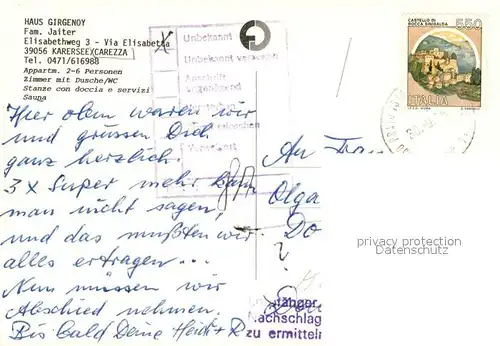 HAUS GIRGENOY
Fam. Jaiter
Elisabethweg 3 - Via Elisabetta
39056 KARERSEE/CAREZZA
Tel. 0471/616988
Appartm. 2-6 Personen
Zimmer mit Dusche/WC
Stanze con doccia e servizi
Sauna
Unbekannt
Unbekannt verzogen
Anschrift
ungenügend
CASTELLO DI
ROCCA SINIBALDA
550
ITALIA
Hier oben waren wir
und grüssen Dich
ganz herzlich.
3 x Super mehr kann
man nicht sagen,
und das mußten wir
alles ertragen...
Nun müssen wir
Abschied nehmen.
Bis bald Deine Heidi + R
An
Olga
Do
?
privacy protection
Datenschutz
Nachschlag
zu ermitteln